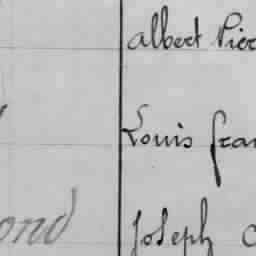 Albert Pier
Louis Fran
ond Joseph C